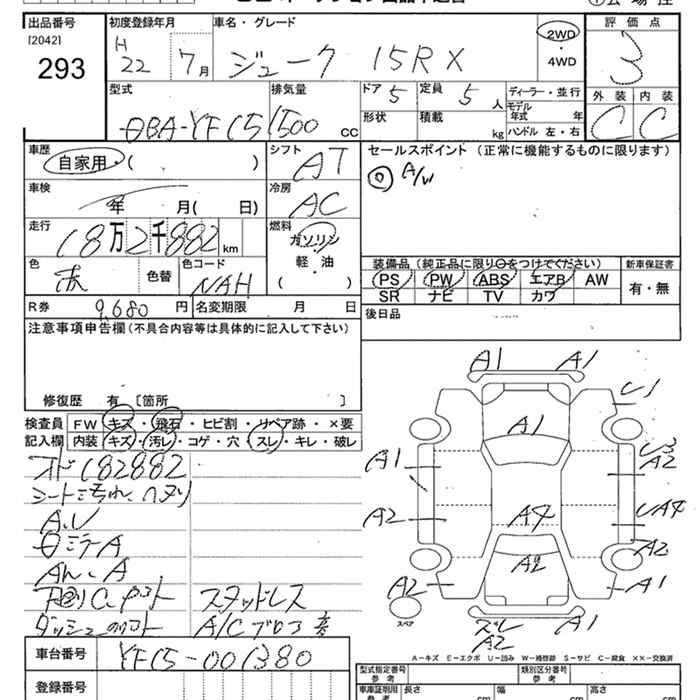 出品番号 初度登録年月 車名・グレード 評価点
[2042] H 2WD
293 22 7月 ジューク 15RX ・ 3
4WD
型式 排気量 ドア 5 定員 5人 ディーラー・並行 外装 内装
モデル年式 年
DBA-YF15 1500cc 形状 積載 kg ハンドル 左・右 C C
車歴 シフト セールスポイント (正常に機能するものに限ります)
自家用・( ) AT ◎ A/W
車検 冷房
年 月( 日) AC
走行 燃料
18万2千882km ガソリン
軽・油
( )
色 色替 色コード 装備品 (純正品に限り○をつけてください) 新車保証書
赤 NAH PS PW ABS エアB AW 有・無
SR ナビ TV カワ
R券 9,680円 名変期限 月 日 後日品
注意事項申告欄(不具合内容等は具体的に記入して下さい)
修復歴 有 [箇所 ]
検査員 FW キズ・飛石・ヒビ割・リペア跡・×要
記入欄 内装 キズ・汚レ・コゲ・穴・スレ・キレ・破レ
182882
A.U
下回りC
スタッドレス
A/C
車台番号 YF15-001380
登録番号
A1 A1
U1
A1
A1 U3
A2
A2 A4 UA4
A2 A2
A2 A1
スペア スレ A1
A2
A-キズ E-エクボ U-凹み W-補修跡 S-サビ C-腐食 XX-交換済
型式指定番号 類別区分番号
参考 参考
車庫証明用 長さ 幅 高さ
参考 cm cm cm